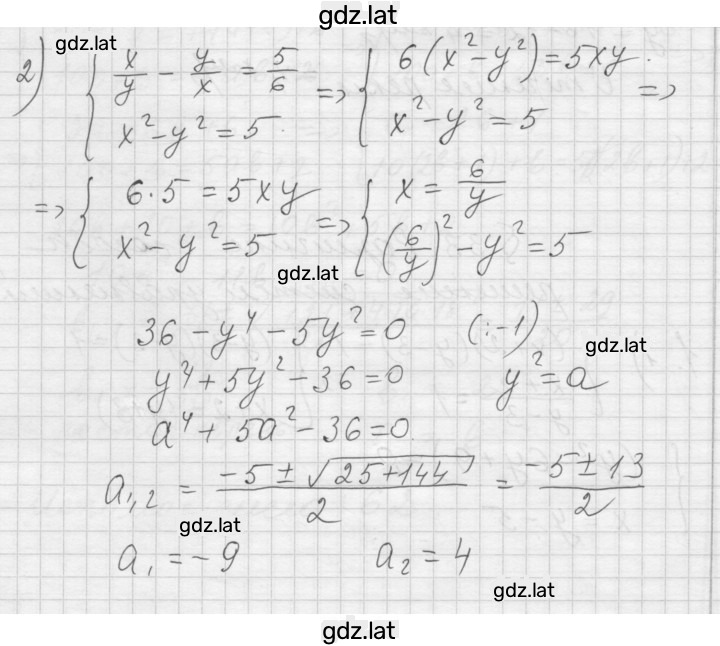 gdz.lat
gdz.lat
2) { x/y - y/x = 5/6 => { 6(x² - y²) = 5xy =>
x² - y² = 5 x² - y² = 5
=> { 6·5 = 5xy => { x = 6/y
x² - y² = 5 (6/y)² - y² = 5
gdz.lat
36 - y⁴ - 5y² = 0 (:-1)
gdz.lat
y⁴ + 5y² - 36 = 0 y² = a
a⁴ + 5a² - 36 = 0
a₁,₂ = (-5 ± √(25+144))/2 = (-5 ± 13)/2
gdz.lat
a₁ = -9 a₂ = 4
gdz.lat
gdz.lat